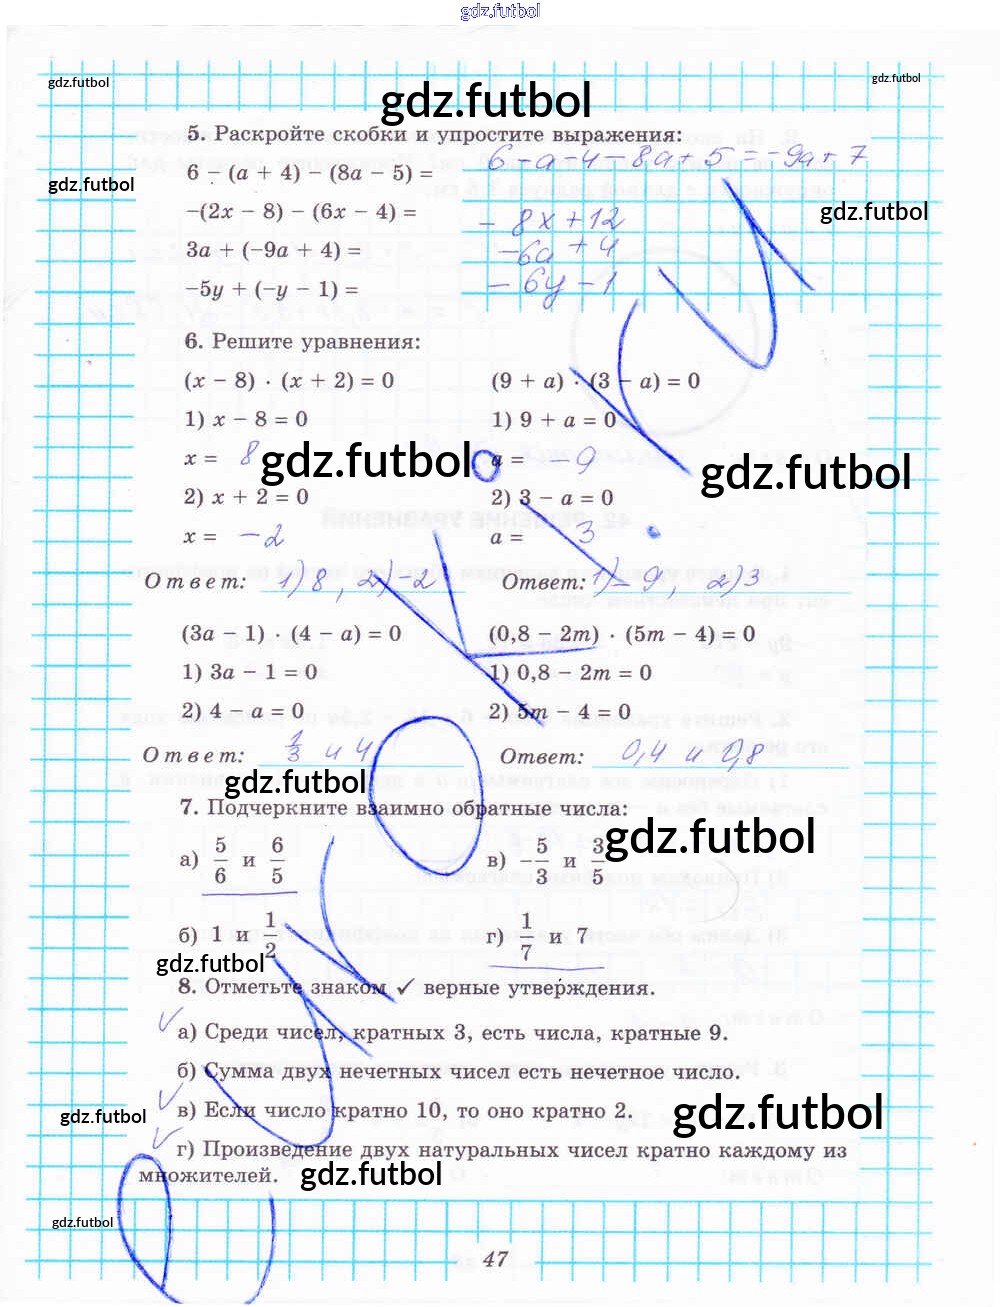 gdz.futbol
gdz.futbol
gdz.futbol
gdz.futbol
5. Раскройте скобки и упростите выражения:
6 − (a + 4) − (8a − 5) = 6 − a − 4 − 8a + 5 = −9a + 7
gdz.futbol
−(2x − 8) − (6x − 4) = − 8x + 12
gdz.futbol
3a + (−9a + 4) = −6a + 4
−5y + (−y − 1) = − 6y − 1
6. Решите уравнения:
(x − 8) · (x + 2) = 0 (9 + a) · (3 − a) = 0
1) x − 8 = 0 1) 9 + a = 0
x = 8 gdz.futbol a = − 9 gdz.futbol
2) x + 2 = 0 2) 3 − a = 0
x = −2 a = 3
Ответ: 1) 8 , 2) −2 Ответ: 1) − 9, 2) 3
(3a − 1) · (4 − a) = 0 (0,8 − 2m) · (5m − 4) = 0
1) 3a − 1 = 0 1) 0,8 − 2m = 0
2) 4 − a = 0 2) 5m − 4 = 0
Ответ: 1/3 и 4 Ответ: 0,4 и 0,8
gdz.futbol
7. Подчеркните взаимно обратные числа:
gdz.futbol
а) 5/6 и 6/5 в) −5/3 и 3/5
б) 1 и 1/2 г) 1/7 и 7
gdz.futbol
8. Отметьте знаком ✓ верные утверждения.
✓ а) Среди чисел, кратных 3, есть числа, кратные 9.
б) Сумма двух нечетных чисел есть нечетное число.
✓ в) Если число кратно 10, то оно кратно 2.
gdz.futbol gdz.futbol
✓ г) Произведение двух натуральных чисел кратно каждому из
множителей. gdz.futbol
gdz.futbol
47